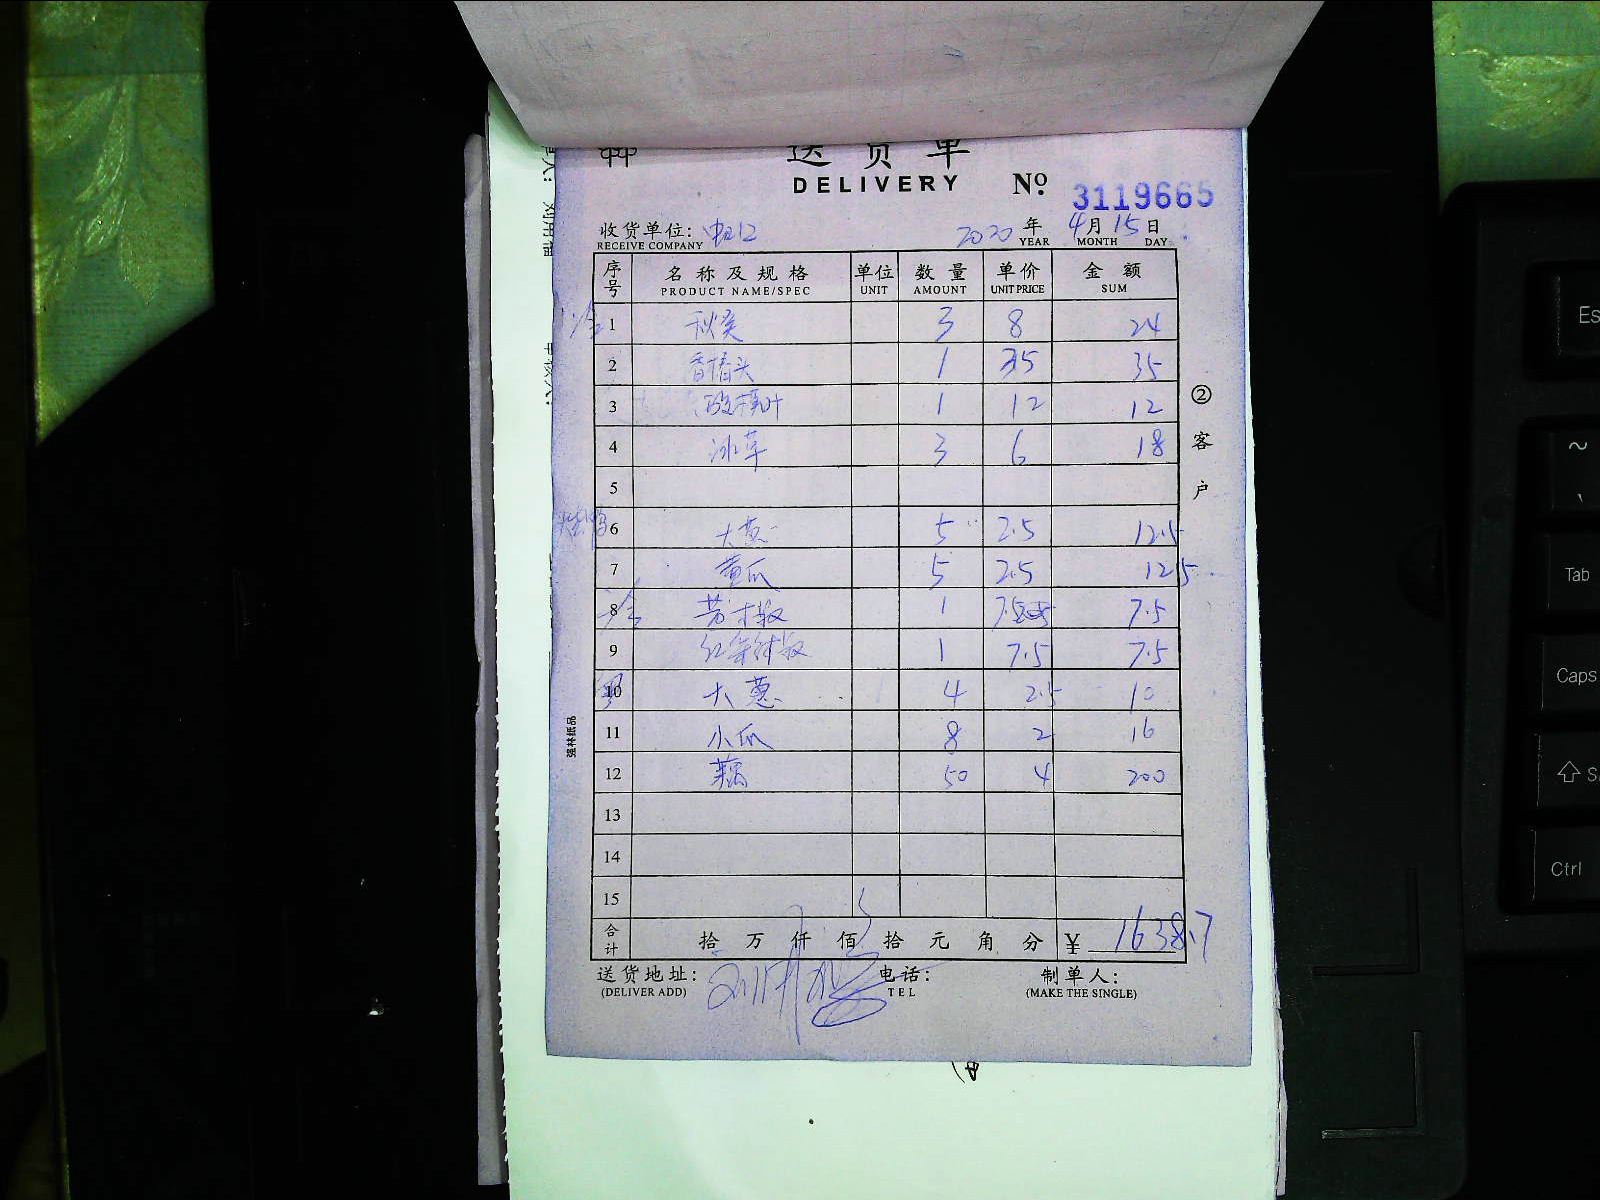 送货单
DELIVERY No 3119665
收货单位: 2020年 4月 15日
RECEIVE COMPANY YEAR MONTH DAY
序号 名称及规格 单位 数量 单价 金额
PRODUCT NAME/SPEC UNIT AMOUNT UNIT PRICE SUM
1 秋葵 3 8 24
2 1 35 35
3 1 12 12
4 冰草 3 6 18
5
6 大葱 5 2.5 12.5
7 黄瓜 5 2.5 12.5
8 1 7.5 7.5
9 1 7.5 7.5
10 大葱 4 2.5 10
11 小瓜 8 2 16
12 藕 50 4 200
13
14
15
合计 拾 万 仟 佰 拾 元 角 分 ¥ 1638.7
送货地址: 电话: 制单人:
(DELIVER ADD) TEL (MAKE THE SINGLE)
②客户
强林纸品
Es
~
Tab
Caps
Ctrl